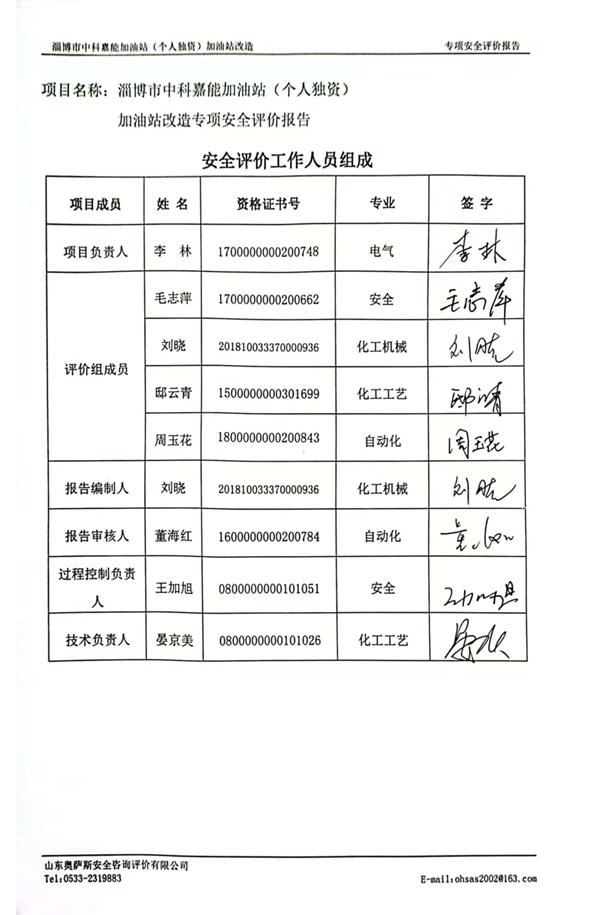 淄博市中科嘉能加油站（个人独资）加油站改造 专项安全评价报告
项目名称：淄博市中科嘉能加油站（个人独资）
加油站改造专项安全评价报告
安全评价工作人员组成
项目成员 姓 名 资格证书号 专业 签 字
项目负责人 李 林 1700000000200748 电气 李林
评价组成员 毛志萍 1700000000200662 安全 毛志萍
刘晓 201810033370000936 化工机械 刘晓
邸云青 1500000000301699 化工工艺 邸云青
周玉花 1800000000200843 自动化 周玉花
报告编制人 刘晓 201810033370000936 化工机械 刘晓
报告审核人 董海红 1600000000200784 自动化
过程控制负责
人 王加旭 0800000000101051 安全
技术负责人 晏京美 0800000000101026 化工工艺
山东奥萨斯安全咨询评价有限公司
Tel:0533-2319883 E-mail:ohsas2002@163.com